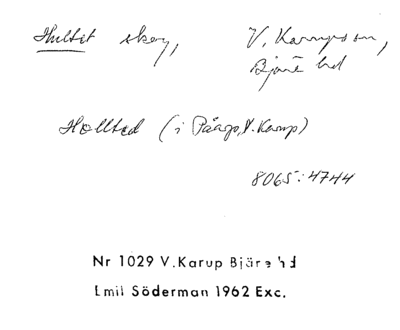 Hultet skog, V. Karups sn,
Bjäre hd
Hollted (i Pårp, V. Karup)
8065:4744
Nr 1029 V.Karup Bjäre hd
Emil Söderman 1962 Exc.